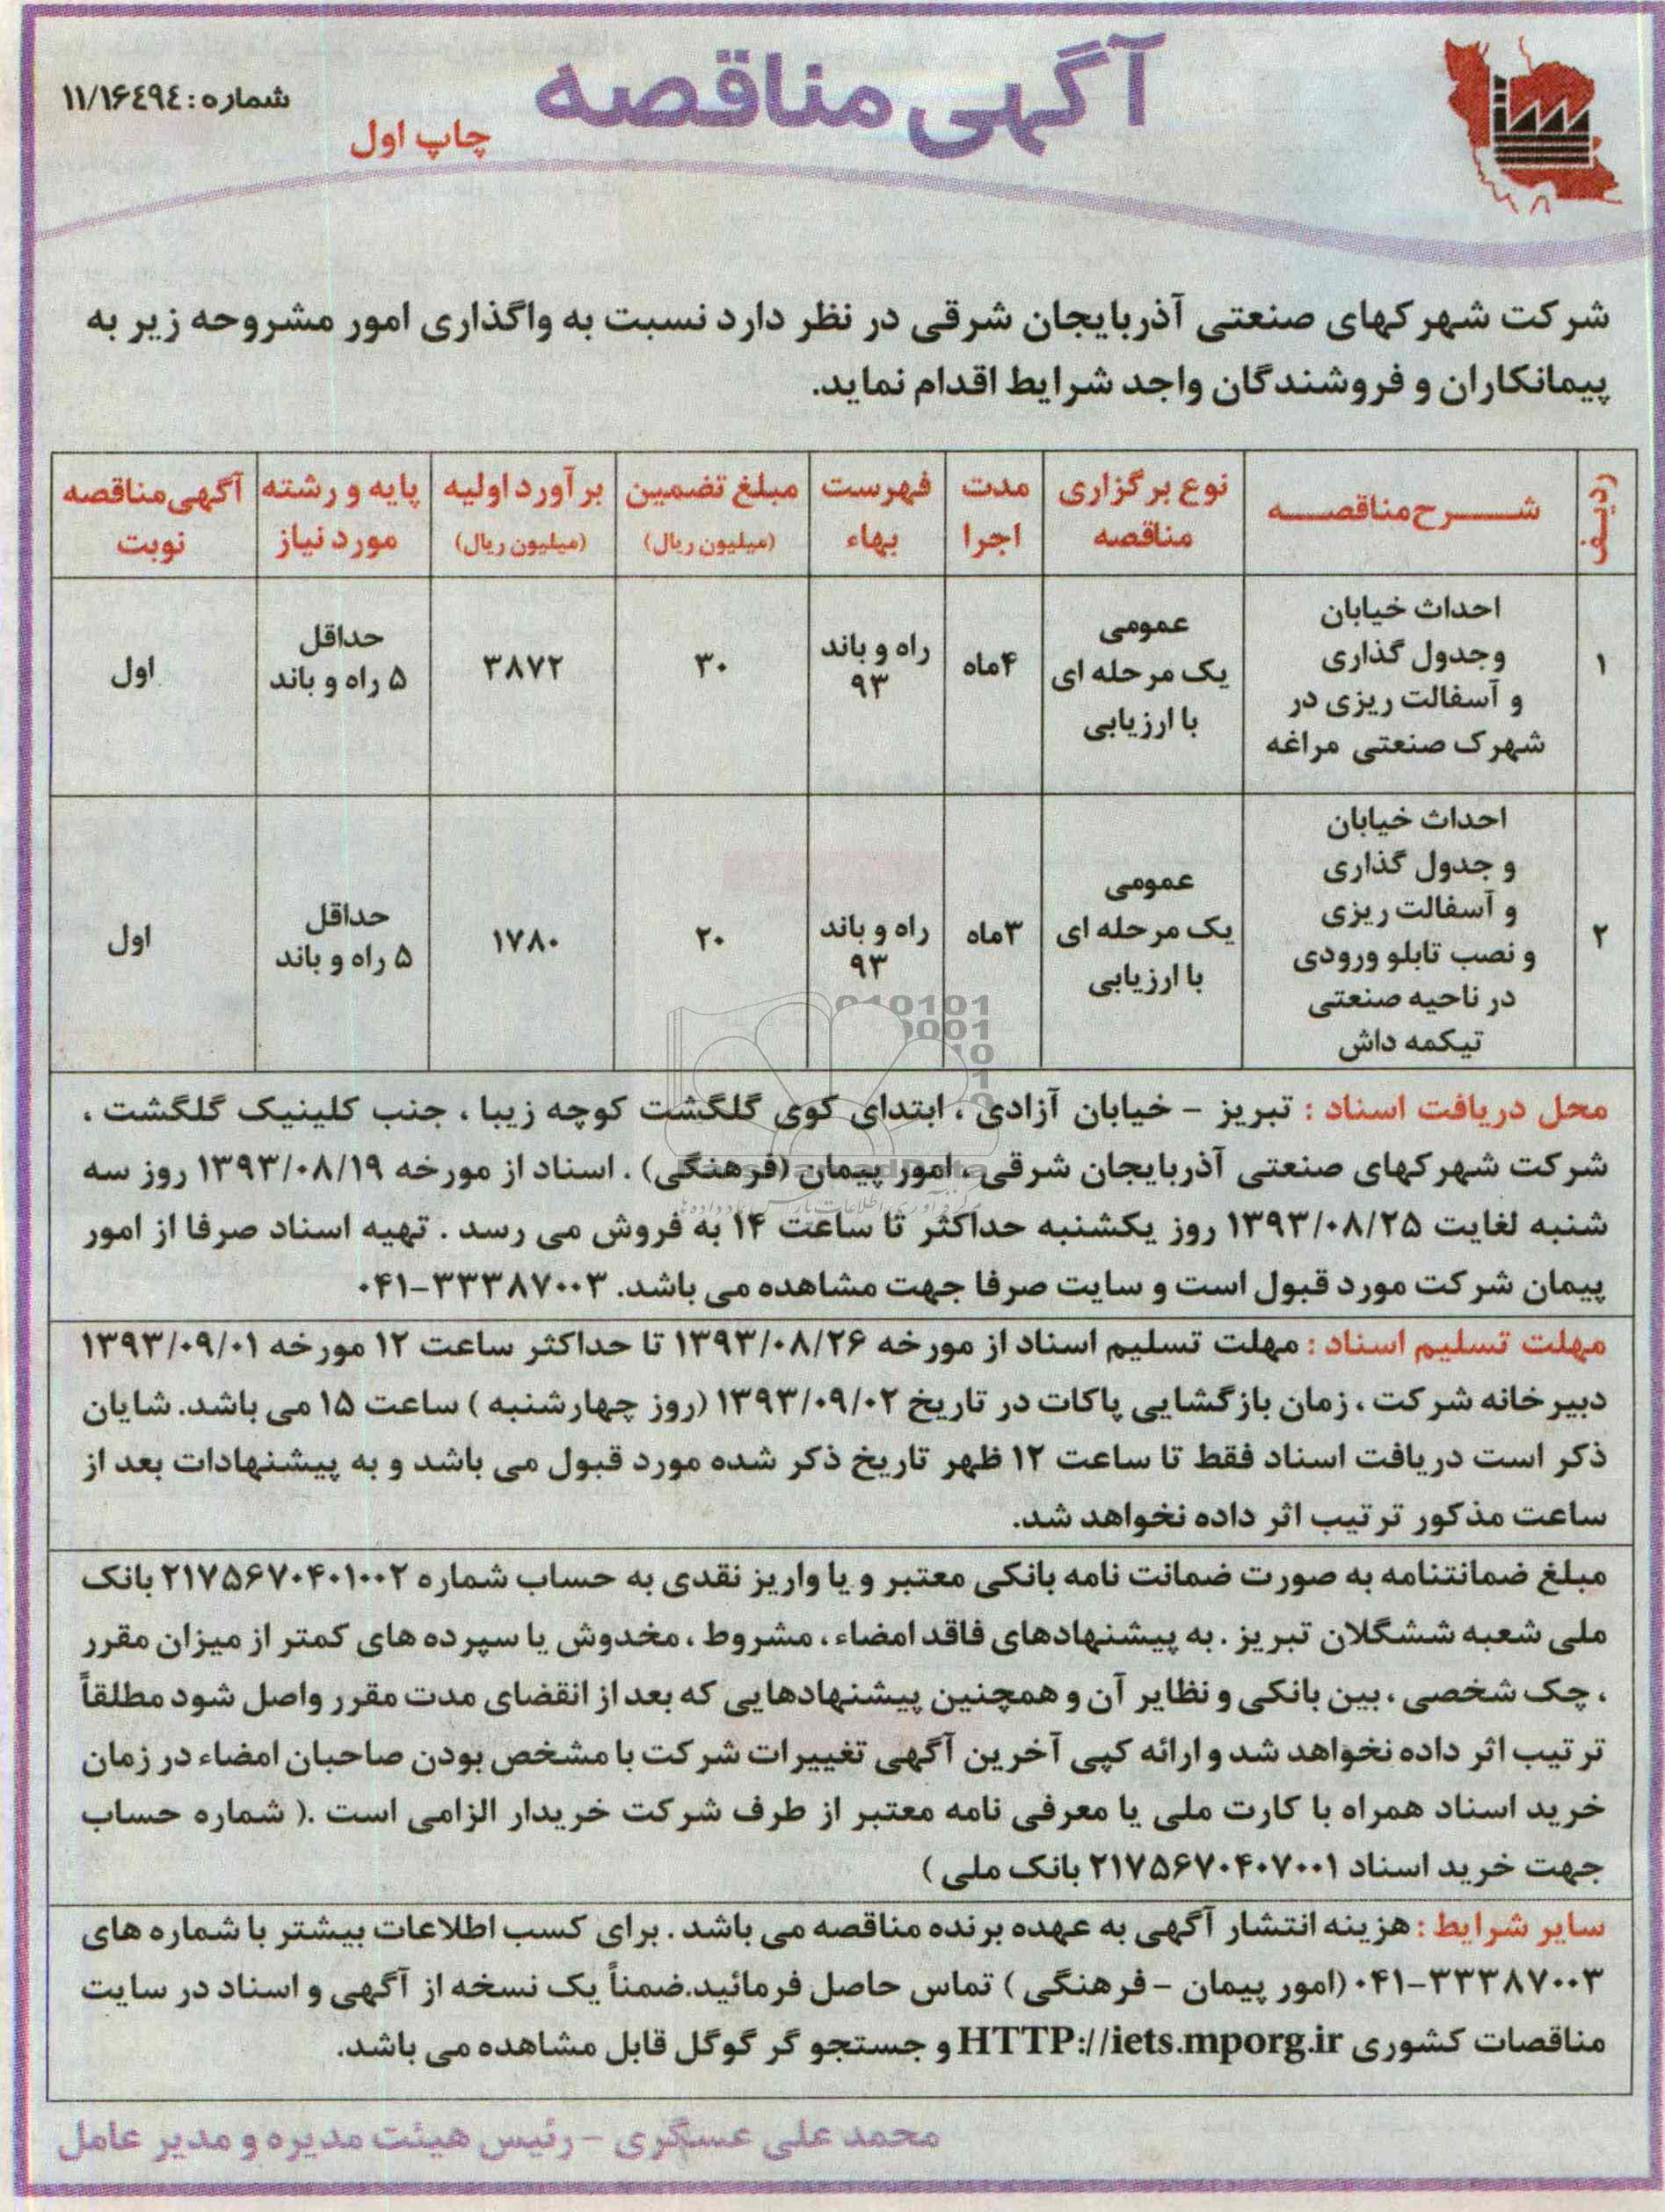 آگهی مناقصه
شماره: ۱۱/۱۶٤۹٤
چاپ اول
شرکت شهرکهای صنعتی آذربایجان شرقی در نظر دارد نسبت به واگذاری امور مشروحه زیر به
پیمانکاران و فروشندگان واجد شرایط اقدام نماید.
ردیف | شرح مناقصه | نوع برگزاری مناقصه | مدت اجرا | فهرست بهاء | مبلغ تضمین (میلیون ریال) | برآورد اولیه (میلیون ریال) | پایه و رشته مورد نیاز | آگهی مناقصه نوبت
۱ | احداث خیابان وجدول گذاری و آسفالت ریزی در شهرک صنعتی مراغه | عمومی یک مرحله ای با ارزیابی | ۴ماه | راه و باند ۹۳ | ۳۰ | ۳۸۷۲ | حداقل ۵ راه و باند | اول
۲ | احداث خیابان و جدول گذاری و آسفالت ریزی و نصب تابلو ورودی در ناحیه صنعتی تیکمه داش | عمومی یک مرحله ای با ارزیابی | ۳ماه | راه و باند ۹۳ | ۲۰ | ۱۷۸۰ | حداقل ۵ راه و باند | اول
محل دریافت اسناد : تبریز - خیابان آزادی ، ابتدای کوی گلگشت کوچه زیبا ، جنب کلینیک گلگشت ،
شرکت شهرکهای صنعتی آذربایجان شرقی ، امور پیمان (فرهنگی) . اسناد از مورخه ۱۳۹۳/۰۸/۱۹ روز سه
شنبه لغایت ۱۳۹۳/۰۸/۲۵ روز یکشنبه حداکثر تا ساعت ۱۴ به فروش می رسد . تهیه اسناد صرفا از امور
پیمان شرکت مورد قبول است و سایت صرفا جهت مشاهده می باشد. ۳۳۳۸۷۰۰۳-۰۴۱
مهلت تسلیم اسناد : مهلت تسلیم اسناد از مورخه ۱۳۹۳/۰۸/۲۶ تا حداکثر ساعت ۱۲ مورخه ۱۳۹۳/۰۹/۰۱
دبیرخانه شرکت ، زمان بازگشایی پاکات در تاریخ ۱۳۹۳/۰۹/۰۲ (روز چهارشنبه ) ساعت ۱۵ می باشد. شایان
ذکر است دریافت اسناد فقط تا ساعت ۱۲ ظهر تاریخ ذکر شده مورد قبول می باشد و به پیشنهادات بعد از
ساعت مذکور ترتیب اثر داده نخواهد شد.
مبلغ ضمانتنامه به صورت ضمانت نامه بانکی معتبر و یا واریز نقدی به حساب شماره ۲۱۷۵۶۷۰۴۰۱۰۰۲ بانک
ملی شعبه ششگلان تبریز . به پیشنهادهای فاقد امضاء ، مشروط ، مخدوش یا سپرده های کمتر از میزان مقرر
، چک شخصی ، بین بانکی و نظایر آن و همچنین پیشنهادهایی که بعد از انقضای مدت مقرر واصل شود مطلقاً
ترتیب اثر داده نخواهد شد و ارائه کپی آخرین آگهی تغییرات شرکت با مشخص بودن صاحبان امضاء در زمان
خرید اسناد همراه با کارت ملی یا معرفی نامه معتبر از طرف شرکت خریدار الزامی است .( شماره حساب
جهت خرید اسناد ۲۱۷۵۶۷۰۴۰۷۰۰۱ بانک ملی )
سایر شرایط : هزینه انتشار آگهی به عهده برنده مناقصه می باشد . برای کسب اطلاعات بیشتر با شماره های
۳۳۳۸۷۰۰۳-۰۴۱ (امور پیمان - فرهنگی ) تماس حاصل فرمائید.ضمناً یک نسخه از آگهی و اسناد در سایت
مناقصات کشوری HTTP://iets.mporg.ir و جستجو گر گوگل قابل مشاهده می باشد.
محمد علی عسگری - رئیس هیئت مدیره و مدیر عامل